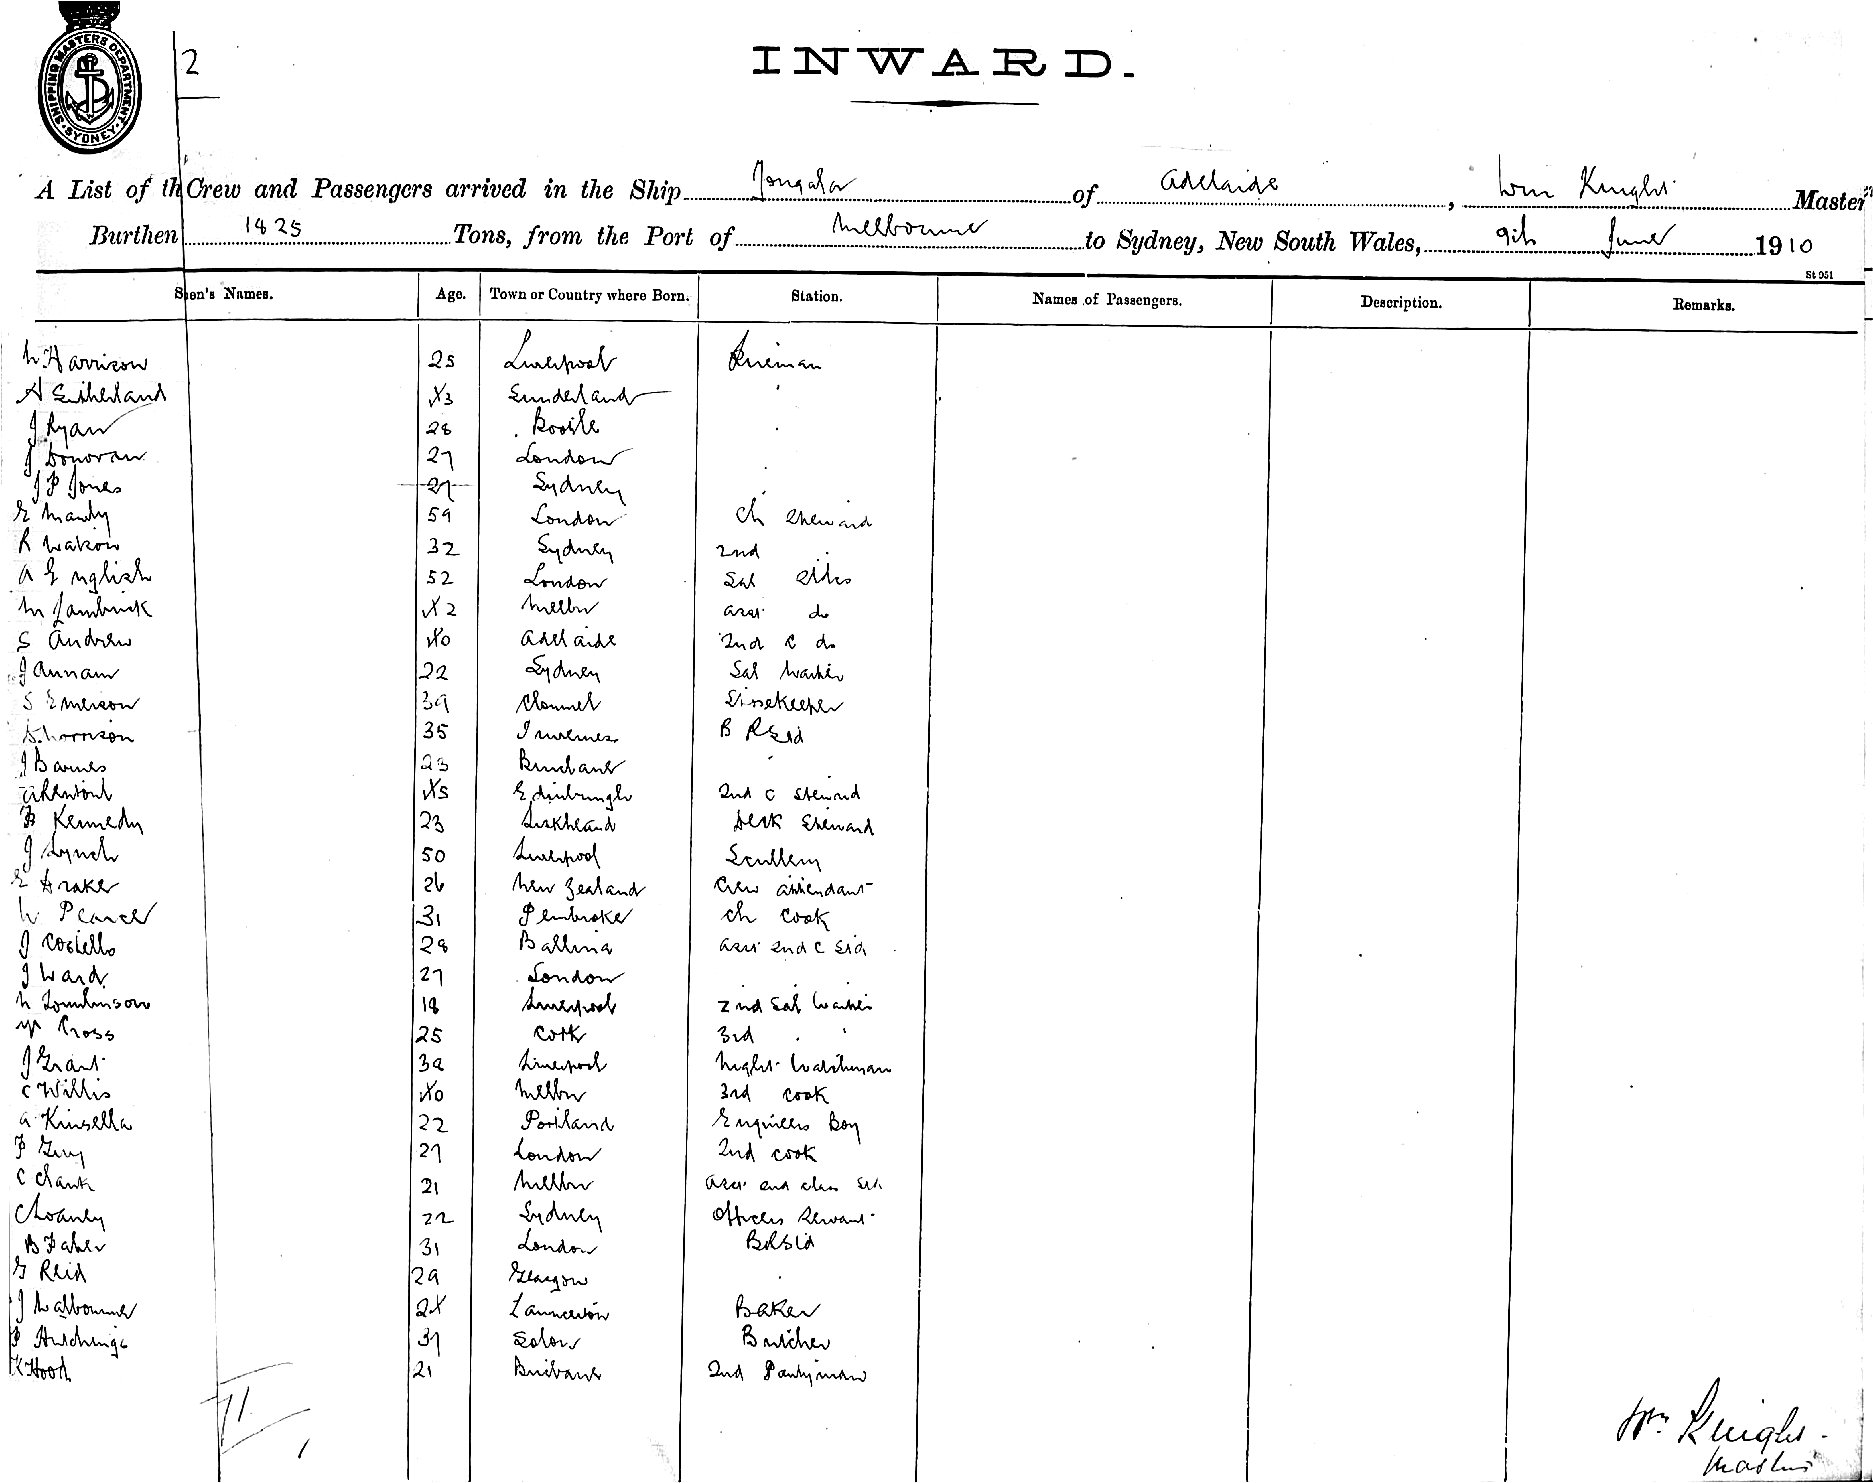 SHIPPING MASTERS DEPARTMENT
SYDNEY
2
INWARD.
A List of th Crew and Passengers arrived in the Ship Yongala of Adelaide, Wm Knight Master
Burthen 1825 Tons, from the Port of Melbourne to Sydney, New South Wales, 9th June 1910
St 951
S en's Names. Age. Town or Country where Born. Station. Names of Passengers. Description. Remarks.
W Harrison 25 Liverpool Fireman
A Sutherland 43 Sunderland
J Ryan 28 Bootle
J Donovan 27 London
J P Jones 27 Sydney
E Manly 59 London Ch Steward
R Watson 32 Sydney 2nd
A English 52 London Sal
M 42 Melbn asst do
S Andrew 40 Adelaide 2nd C do
J Annam 22 Sydney Sal Waiter
S Emerson 39 Storekeeper
D Morrison 35 Inverness B R Std
J Barnes 23 Brisbane
45 Edinburgh 2nd C Steward
F Kennedy 23 Deck Steward
J Lynch 50 Liverpool Scullery
E Draker 26 New Zealand Crew attendant
W Pearce 31 Pembroke Ch Cook
J Costello 28 Ballina asst 2nd C Std
J Ward 27 London
W Tomlinson 18 Liverpool 2nd Sal Waiter
Cross 25 Cork 3rd
J Grant 39 Liverpool Night Watchman
C Willis 40 Melbn 3rd Cook
A Kinsella 22 Portland Engineers Boy
F Guy 27 London 2nd Cook
C Clark 21 Melbn asst 2nd class Std
22 Sydney Officers Servant
B Faher 31 London B R Std
G Reid 29 Glasgow
J 24 Launceston Baker
F Hutchings 37 Butcher
K Hood 21 Brisbane 2nd Pantryman
Wm Knight
Master